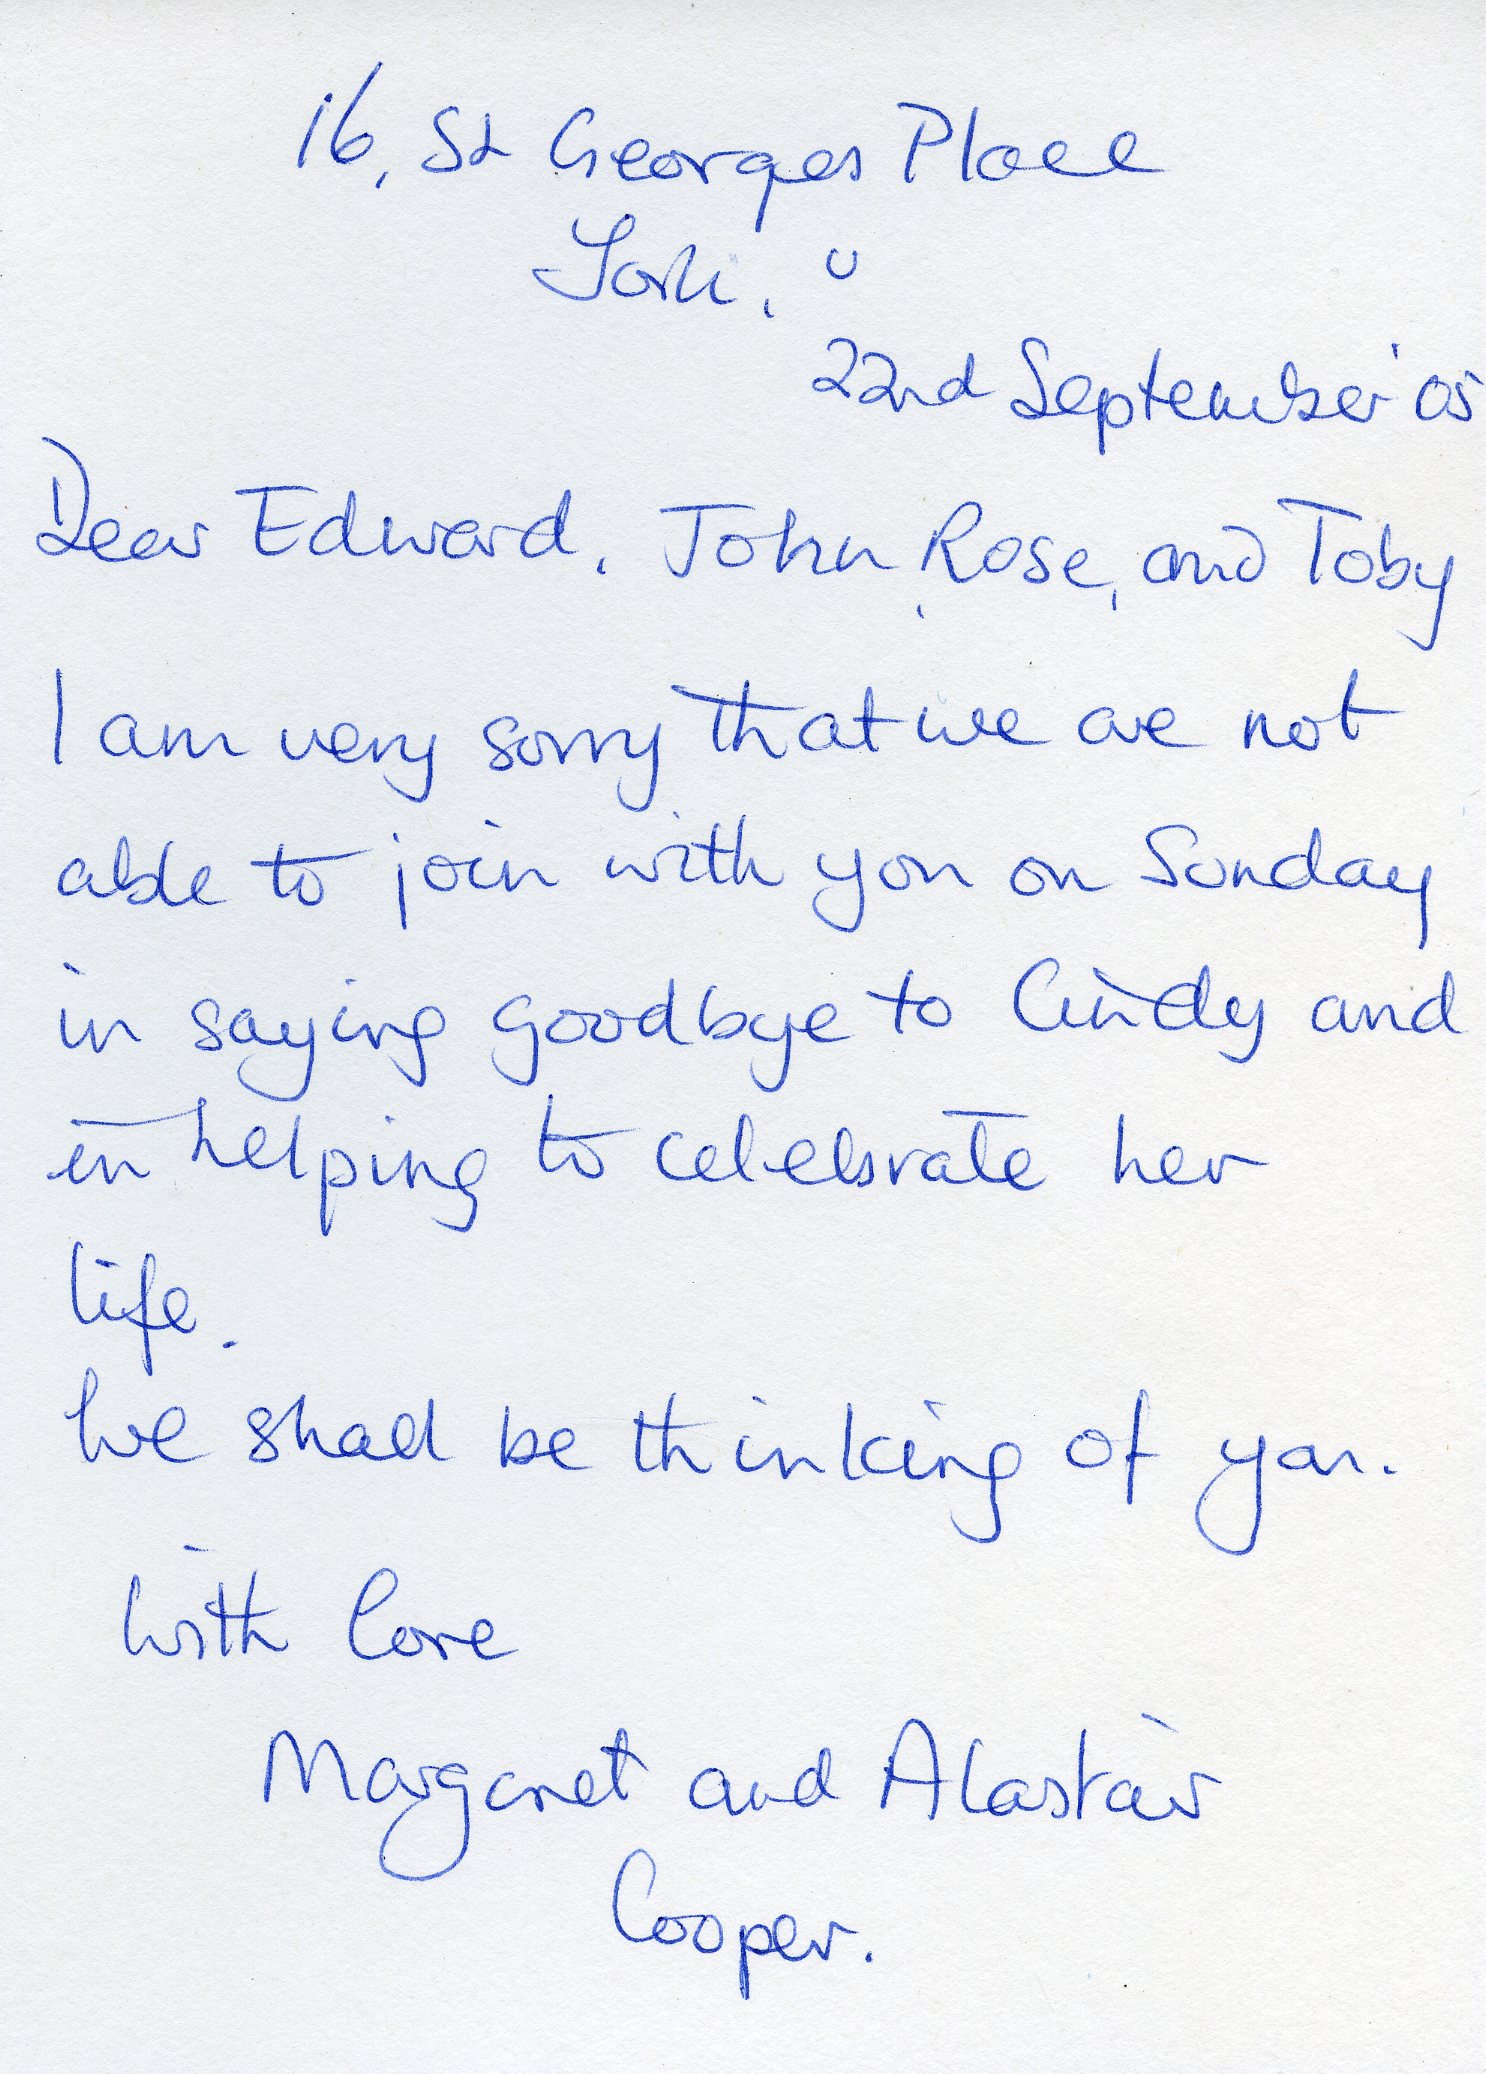 16, St Georges Place
York.
22nd September '05
Dear Edward, John, Rose, and Toby
I am very sorry that we are not
able to join with you on Sunday
in saying goodbye to Cindy and
in helping to celebrate her
life.
We shall be thinking of you.
With love
Margaret and Alastair
Cooper.